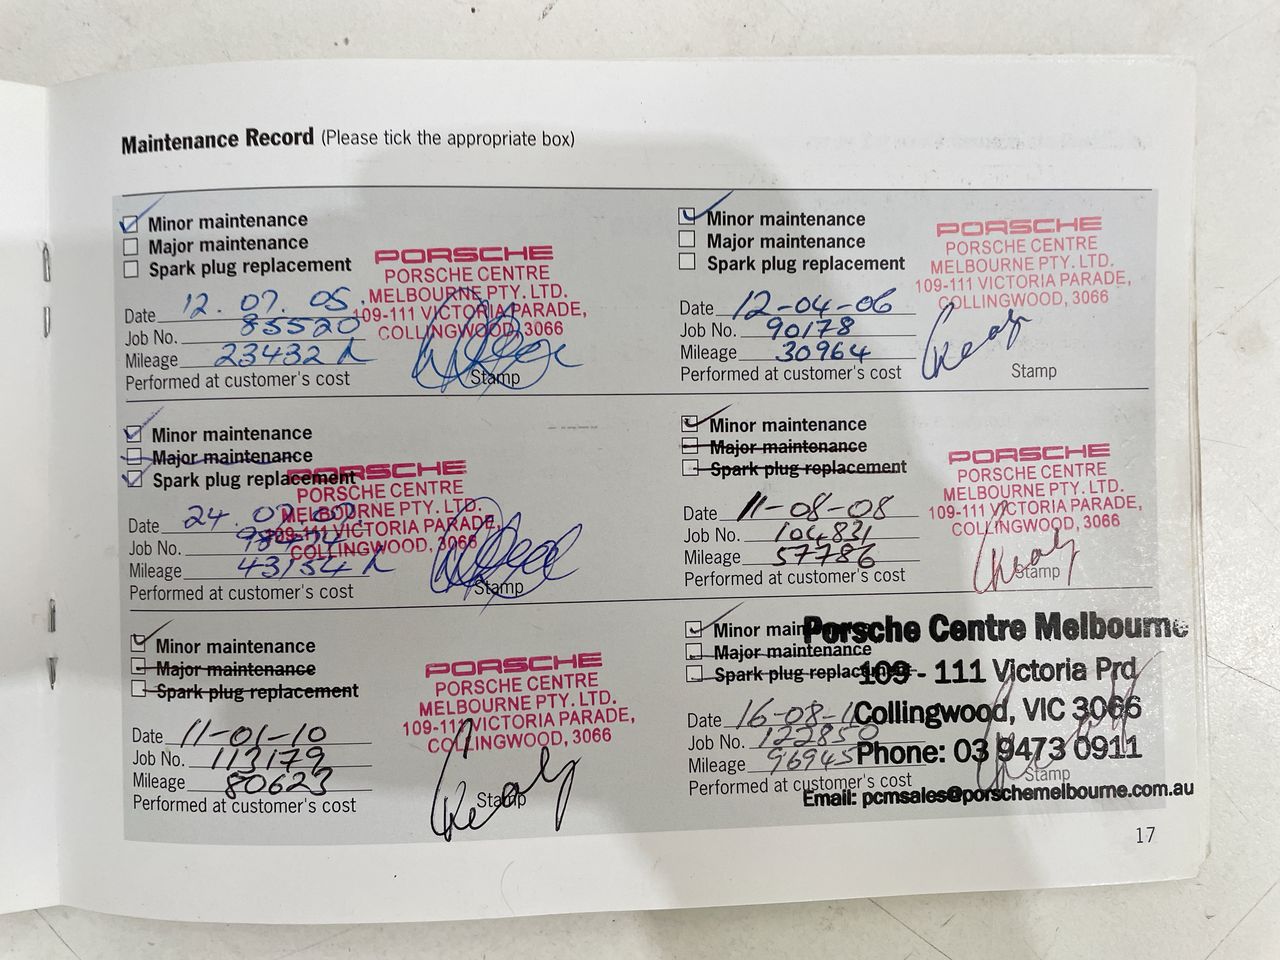 Maintenance Record (Please tick the appropriate box)
Minor maintenance
Major maintenance
Spark plug replacement
PORSCHE
PORSCHE CENTRE
MELBOURNE PTY. LTD.
109-111 VICTORIA PARADE,
COLLINGWOOD, 3066
Date 12.07.05.
Job No. 85520
Mileage 23432
Performed at customer's cost
Stamp
Minor maintenance
Major maintenance
Spark plug replacement
PORSCHE
PORSCHE CENTRE
MELBOURNE PTY. LTD.
109-111 VICTORIA PARADE,
COLLINGWOOD, 3066
Date 12-04-06
Job No. 90178
Mileage 30964
Performed at customer's cost
Stamp
Minor maintenance
Major maintenance
Spark plug replacement
PORSCHE
PORSCHE CENTRE
MELBOURNE PTY. LTD.
109-111 VICTORIA PARADE,
COLLINGWOOD, 3066
Date 24.07.
Job No.
Mileage 43134
Performed at customer's cost
Stamp
Minor maintenance
Major maintenance
Spark plug replacement
PORSCHE
PORSCHE CENTRE
MELBOURNE PTY. LTD.
109-111 VICTORIA PARADE,
COLLINGWOOD, 3066
Date 11-08-08
Job No. 104831
Mileage 57786
Performed at customer's cost
Stamp
Minor maintenance
Major maintenance
Spark plug replacement
PORSCHE
PORSCHE CENTRE
MELBOURNE PTY. LTD.
109-111 VICTORIA PARADE,
COLLINGWOOD, 3066
Date 11-01-10
Job No. 113179
Mileage 80623
Performed at customer's cost
Stamp
Minor
Major maintenance
Spark plug
Porsche Centre Melbourne
109 - 111 Victoria Prd
Collingwood, VIC 3066
Phone: 03 9473 0911
Email: pcmsales@porschemelbourne.com.au
Date 16-08-1
Job No. 122850
Mileage 96945
Performed at customer's cost
Stamp
17